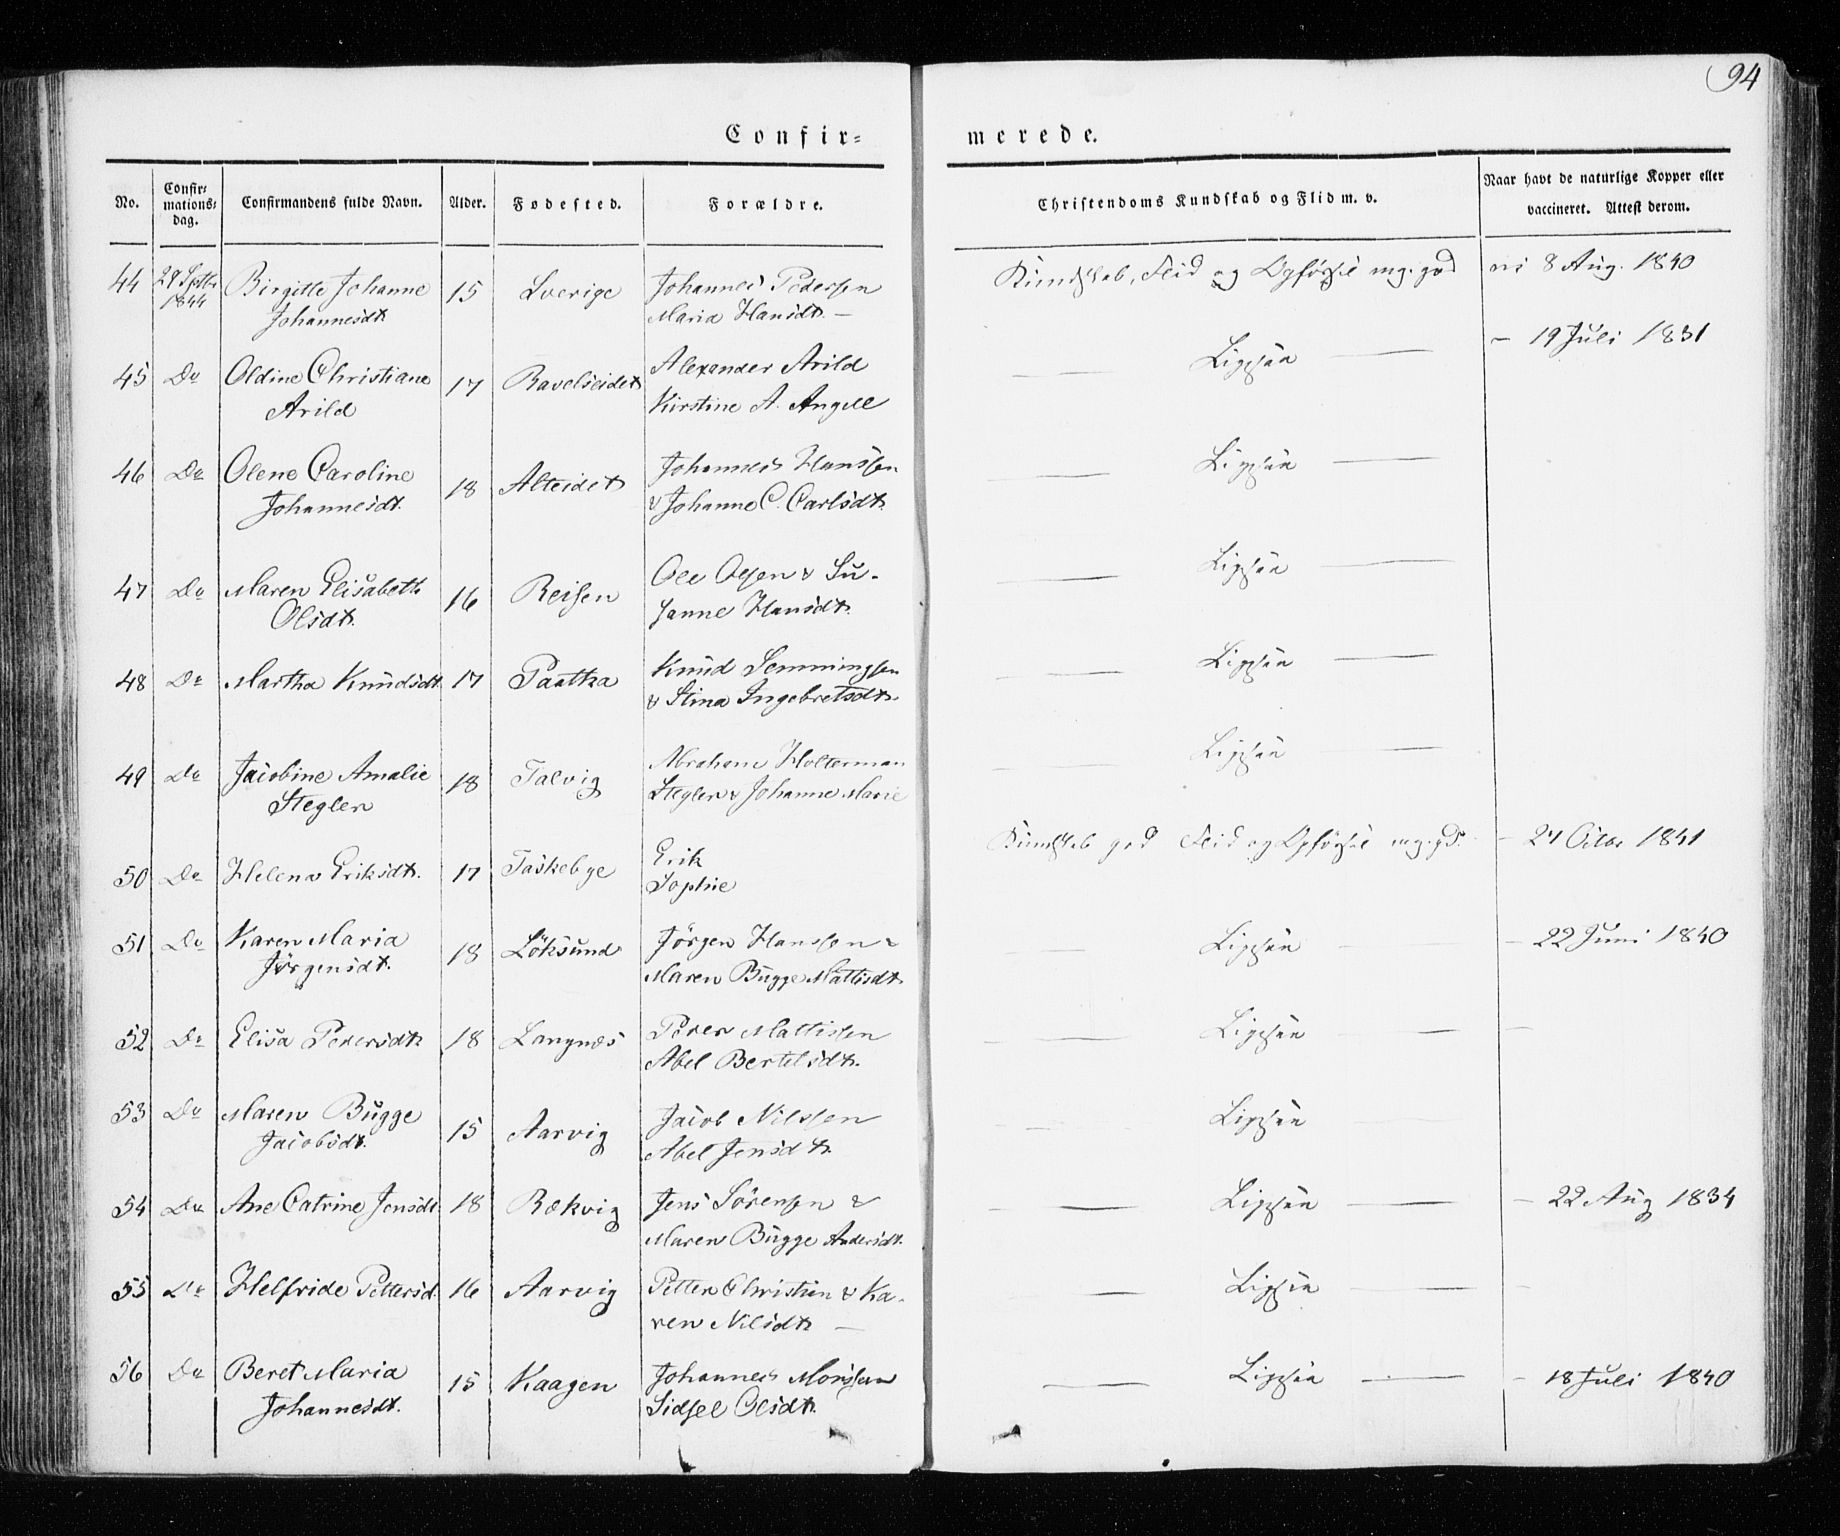 94
Confir= merede.
No. Confir= mations= dag. Confirmandens fulde Navn. Alder. Fødested. Forældre. Christendoms Kundskab og Flid m. v. Naar havt de naturlige Kopper eller vaccineret. Attest derom.
44 29 Septbr 1844 Birgitte Johanne 15 Sverige Johannes Pedersen Kundskab, Flid og Opførsel mg. god 8 Aug. 1840
Johannesdt. Maria Hansdt. —
45 Do Oldine Christiane 17 Ravelseidet Alexander Arild — Ligesaa — – 19 Juli 1831
Arild Kirstine A. Angell
46 Do Olene Caroline 18 Alteidet Johannes Hanssen — Ligesaa —
Johannesdt. & Johanne C. Carlsdt.
47 Do Maren Elisabeth 16 Reisen Ole Olsen & Su- — Ligesaa —
Olsdt. sanne Hansdt.
48 Do Martha Knudsdt 17 Paatka Knud Semmingsen — Ligesaa —
& Stina Ingebretsdt.
49 Do Jacobine Amalie 18 Talvig Abraham Holterman — Ligesaa —
Stegler Stegler & Johanne Marie
50 Do Helena Eriksdt. 17 Taskebye Erik Kundskab god Flid og Opførsel mg. gd. – 27 Octbr 1841
Sophie
51 Do Karen Maria 18 Löksund Jörgen Hanssen & — Ligesaa — – 22 Juni 1840
Jörgensdt. Maren Bugge Mattisdt.
52 Do Elisa Pedersdt. 18 Langnæs Peder Mattissen — Ligesaa — –
Abel Bertelsdt.
53 Do Maren Bugge 15 Aarvig Jacob Nilssen — Ligesaa —
Jacobsdt. Abel Jensdt.
54 Do Ane Catrine Jensdt 18 Rekvig Jens Sörensen & — Ligesaa — – 22 Aug 1834
Maren Bugge Andersdt.
55 Do Helfride Pettersd. 16 Aarvig Petter Christian & Ka- — Ligesaa — –
ren Nilsdt. —
56 Do Beret Maria 15 Kaagen Johannes Monssen — Ligesaa — – 18 Juli 1840
Johannesdt. Sidsel Olsdt.